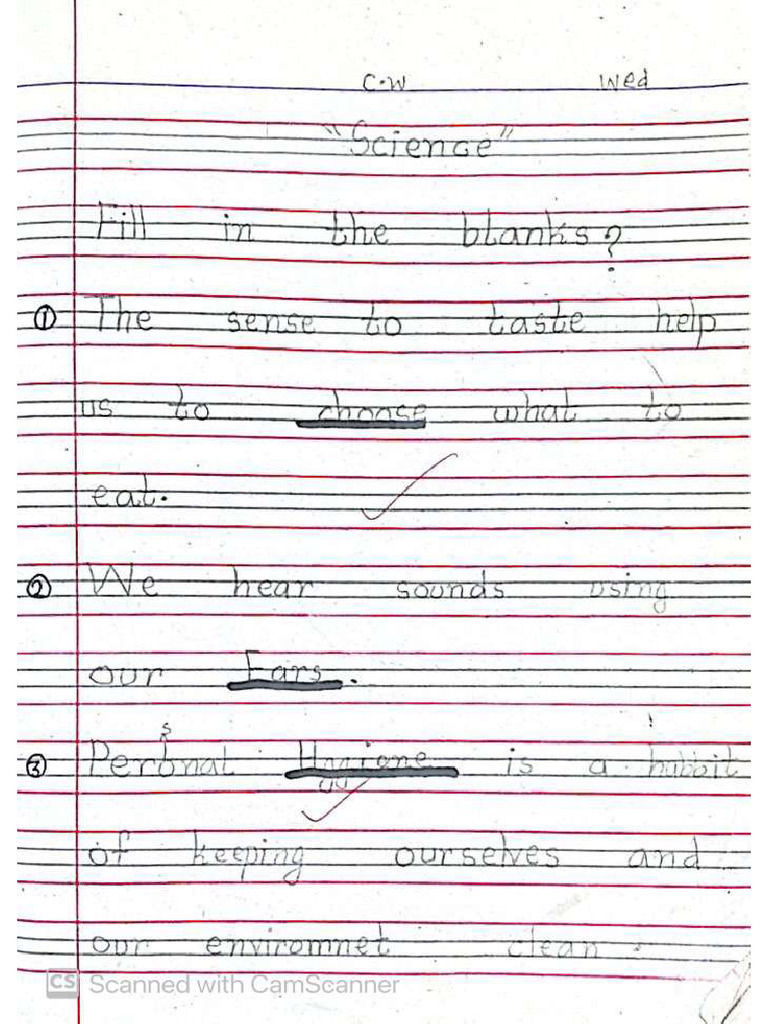 C.W Wed
"Science"
Fill in the blanks?
① The sense to taste help
us to choose what to
eat.
② We hear sounds using
our Ears.
s
③ Peronal Hygiene is a habbit
of keeping ourselves and
our enviromnet clean.
CS Scanned with CamScanner